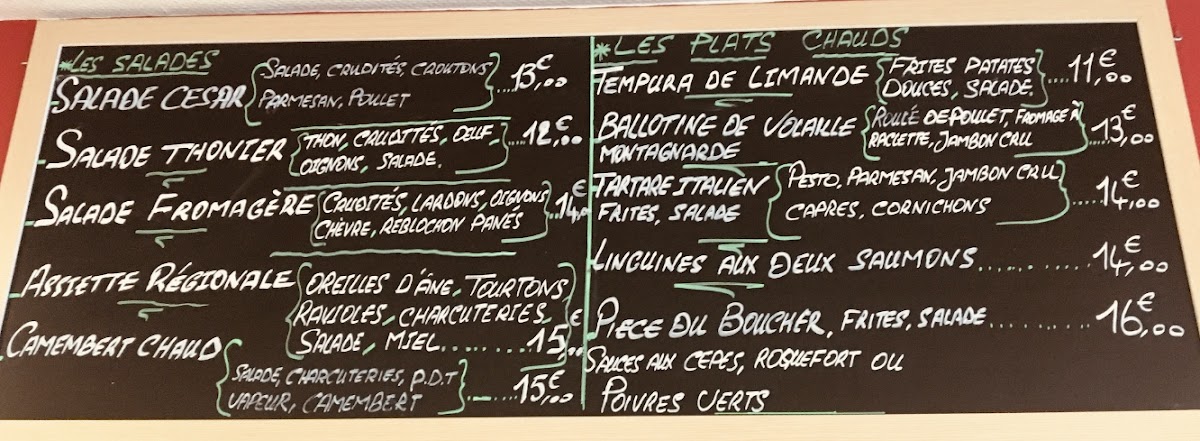 *LES SALADES
SALADE CESAR
SALADE, CRUDITÉS, CROUTONS
PARMESAN, POULET
....13€,00
SALADE THONIER
THON, CRUDITÉS, OEUF,
OIGNONS, SALADE.
...12€,00
SALADE FROMAGÈRE
CRUDITÉS, LARDONS, OIGNONS
CHÈVRE, REBLOCHON PANÉS
14€,00
ASSIETTE RÉGIONALE
OREILLES D'ÂNE, TOURTONS,
RAVIOLES, CHARCUTERIES,
SALADE, MIEL.........15€,00
CAMEMBERT CHAUD
SALADE, CHARCUTERIES, P.D.T
VAPEUR, CAMEMBERT
......15€,00
*LES PLATS CHAUDS
TEMPURA DE LIMANDE
FRITES PATATES
DOUCES, SALADE.
....11€,00
BALLOTINE DE VOLAILLE
MONTAGNARDE
ROULÉ DE POULET, FROMAGE À
RACLETTE, JAMBON CRU
13€,00
TARTARE ITALIEN
FRITES, SALADE
PESTO, PARMESAN, JAMBON CRU
CAPRES, CORNICHONS
.....14€,00
LINGUINES AUX DEUX SAUMONS...........14€,00
PIECE DU BOUCHER, FRITES, SALADE...........16€,00
SAUCES AUX CEPES, ROQUEFORT OU
POIVRES VERTS